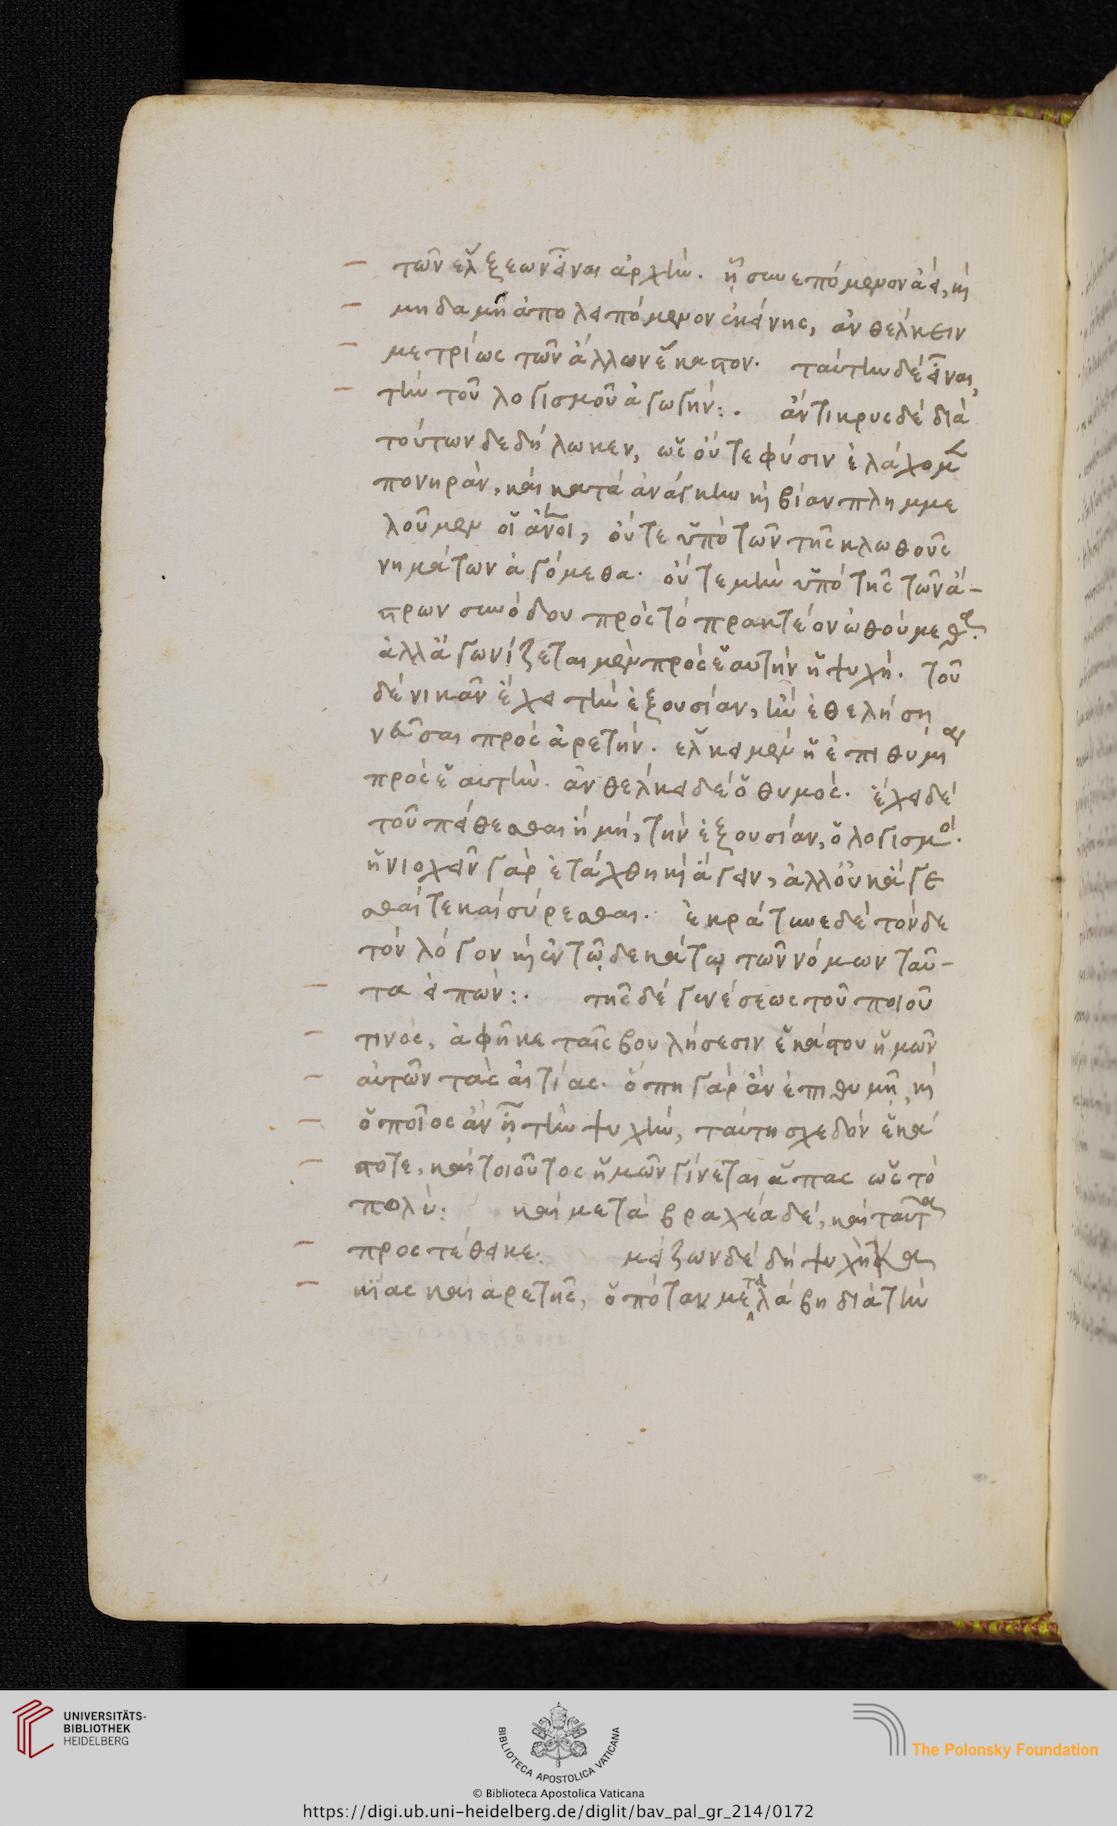 τῶν ἕλξεων εἶναι ἀρχὴν. ᾗ συνεπόμενον ἀεί, καὶ
μηδαμῆ ἀπολειπόμενον ἐκείνης, ἀνθέλκειν
μετρίως τῶν ἄλλων ἕκαστον. ταύτην δέ εἶναι
τὴν τοῦ λογισμοῦ ἀγωγήν:. ἄντικρυς δέ διὰ
τούτων δεδήλωκεν, ὡς οὔτε φύσιν ἐλάχομεν
πονηρὰν, καὶ κατά ἀνάγκην καὶ βίαν πλημμε
λοῦμεν οἱ ἄνοι, οὔτε ὑπὸ τῶν τῆς κλωθοῦς
νημάτων ἀγόμεθα. οὔτε μὴν ὑπό τῆς τῶν ἄ-
στρων συνόδου πρὸς τό πρακτέον ὠθούμεθα.
ἀλλ' ἀγωνίζεται μὲν πρὸς ἑαυτὴν ἡ ψυχή. τοῦ
δέ νικᾶν ἔχει τὴν ἐξουσίαν, ἢν ἐθελήση
νεῦσαι πρὸς ἀρετήν. ἕλκει μὲν ἡ ἐπιθυμία
πρὸς ἑαυτὴν. ἀνθέλκει δέ ὁ θυμὸς. ἔχει δέ
τοῦ πείθεσθαι ἢ μή, τὴν ἐξουσίαν, ὁ λογισμός.
ἡνιοχεῖν γὰρ ἐτάχθη καὶ ἄγειν, ἀλλ' οὐκ ἄγε
σθαί τε καί σύρεσθαι. ἐκράτυνε δέ τόνδε
τὸν λόγον καὶ ἐν τῶ δεκάτῳ τῶν νόμων ταῦ-
τα εἰπὼν:. τῆς δέ γενέσεως τοῦ ποιοῦ
τινὸς, ἀφῆκε ταῖς βουλήσεσιν ἑκάστου ἡμῶν
αὐτῶν τὰς αἰτίας. ὅπη γὰρ ἂν ἐπιθυμῇ, καὶ
ὁποῖος ἂν ᾖ τὴν ψυχὴν, ταύτη σχεδὸν ἑκά
στοτε, καὶ τοιοῦτος ἡμῶν γίνεται ἅπας ὡς τὸ
πολύ: καὶ μετὰ βραχέα δέ, καὶ ταῦτα
προστέθεικε: μείζων δέ δή ψυχὴ κα
κίας καὶ ἀρετῆς, ὁπόταν μεταλάβη διὰ τὴν
UNIVERSITÄTS-
BIBLIOTHEK
HEIDELBERG
BIBLIOTECA APOSTOLICA VATICANA
The Polonsky Foundation
© Biblioteca Apostolica Vaticana
https://digi.ub.uni-heidelberg.de/diglit/bav_pal_gr_214/0172